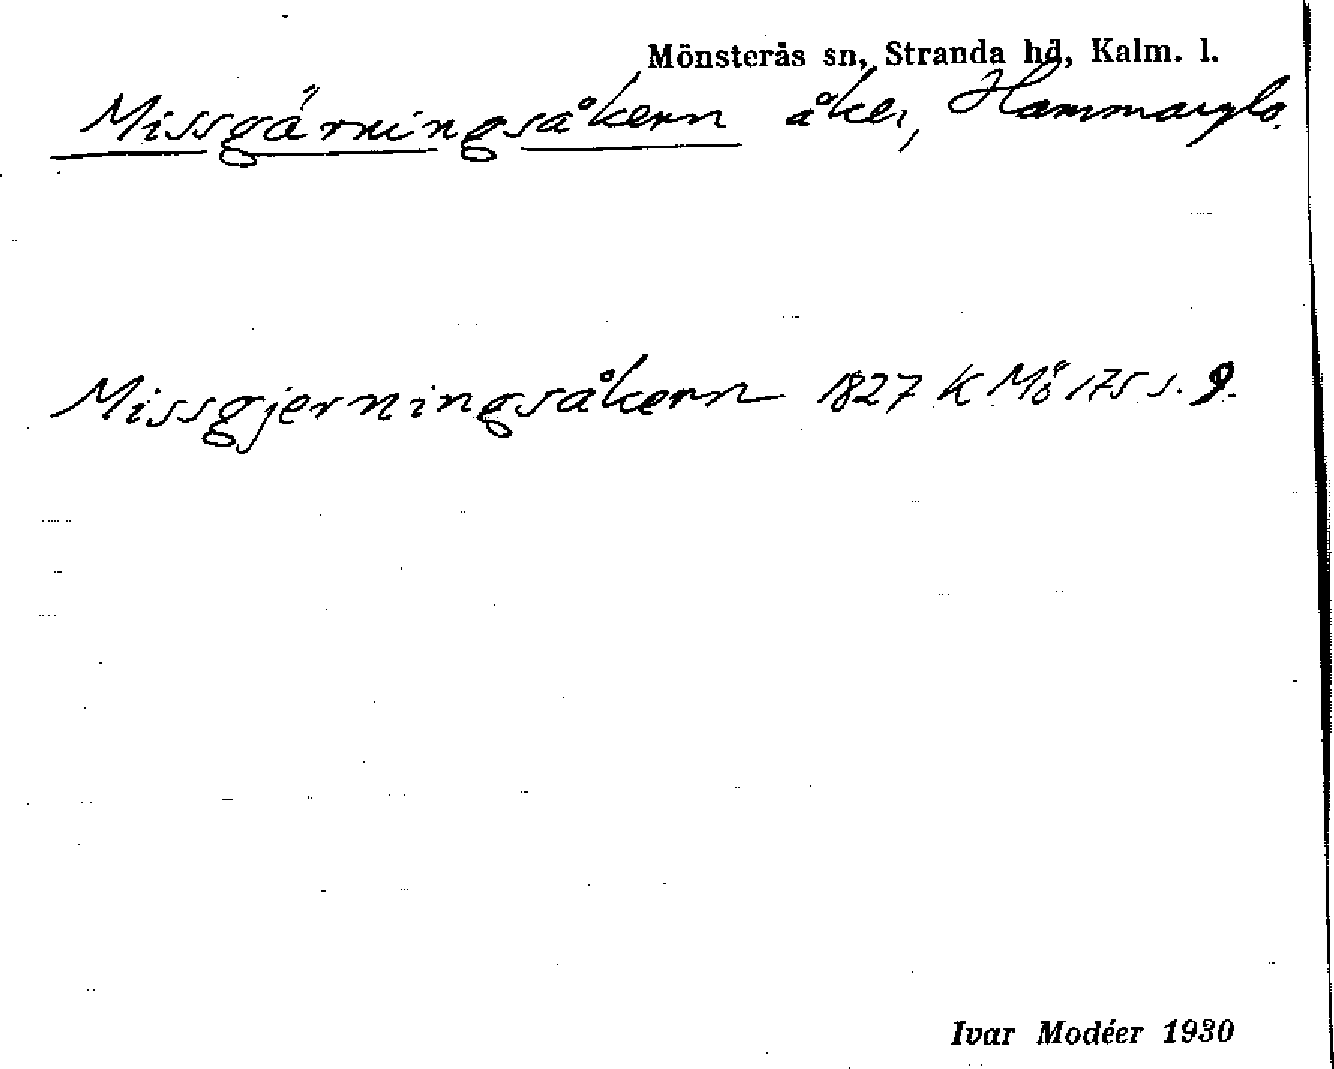 Mönsterås sn, Stranda hd, Kalm. l.
Missgärningsåkern åker, Hammarglo.
Missgjerningsåkern 1827 K Mö 175 s. 9.
Ivar Modéer 1930